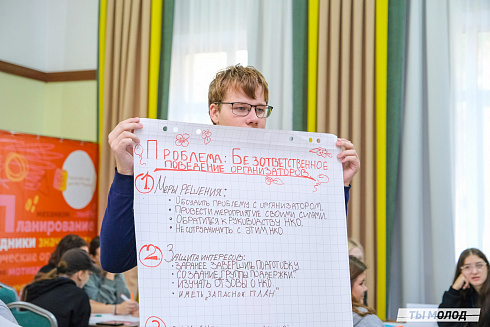 Проблема: Безответственное
поведение организаторов.
1 Меры решения:
• Обсудить проблему с организатором.
• Провести мероприятие своими силами.
• Обратиться к руководству НКО.
• Не сотрудничать с этим НКО.
2 Защита интересов:
• Заранее завершить подготовку
• Создание "группы поддержки"
• Изучать отзывы о НКО
• Иметь "запасной план"
3
Планирование
значи
ТЫ МОЛОД